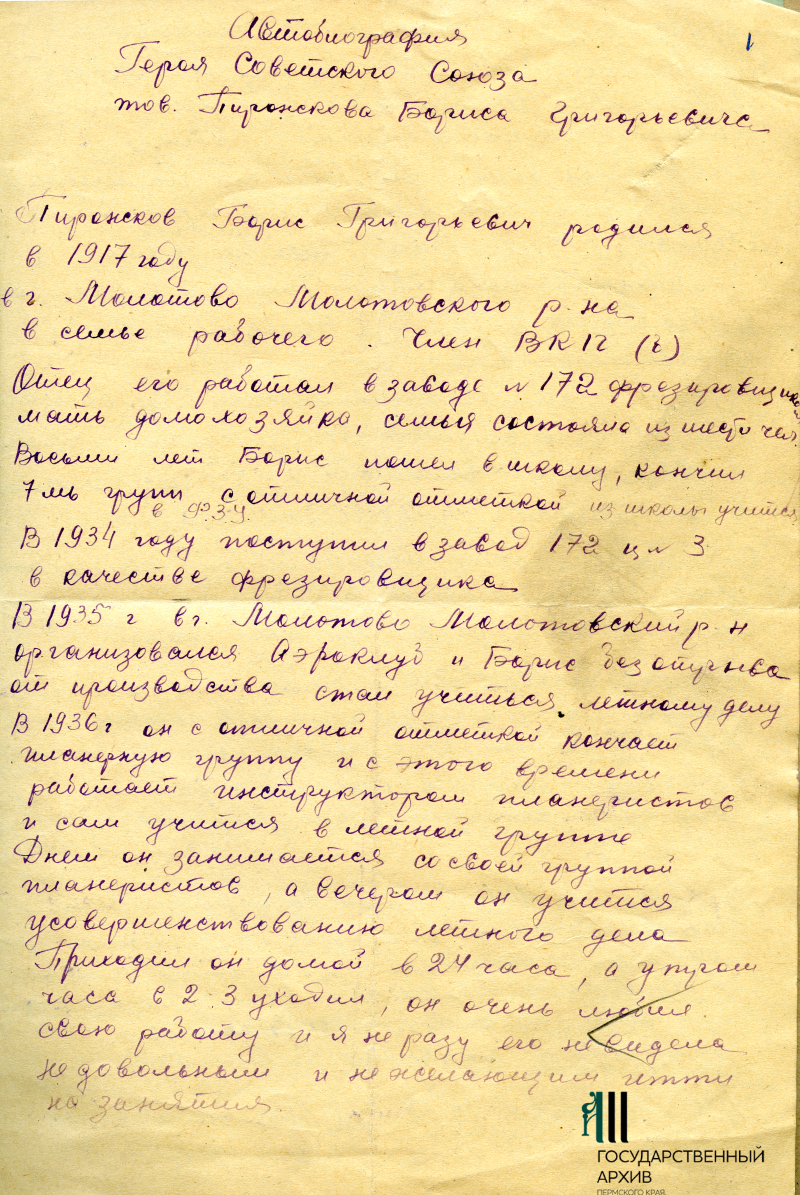 Автобиография
1
Героя Советского Союза
тов. Пирожкова Бориса Григорьевича
Пирожков Борис Григорьевич родился
в 1917 году
в г. Молотово Молотовского р-на
в семье рабочего. Член ВКП(б)
Отец его работал в заводе № 172 фрезировщиком
мать домохозяйка, семья состояла из шести чел.
Восьми лет Борис пошел в школу, кончил
7мь групп с отличной отметкой из школы учится
в ФЗУ.
В 1934 году поступил в завод 172 ц № 3
в качестве фрезировщика
В 1935 г в г. Молотово Молотовский р-н
организовался Аэроклуб и Борис без отрыва
от производства стал учиться летному делу
В 1936 г он с отличной отметкой кончает
планерную группу и с этого времени
работает инструктором планеристов
и сам учится в летной группе
Днем он занимается со своей группой
планеристов, а вечером он учится
усовершенствованию летного дела
Приходил он домой в 24 часа, а утром
часа в 2-3 уходил, он очень любил
свою работу и я не разу его не видела
не довольным и не желающим итти
на занятия.
ГОСУДАРСТВЕННЫЙ
АРХИВ
ПЕРМСКОГО КРАЯ